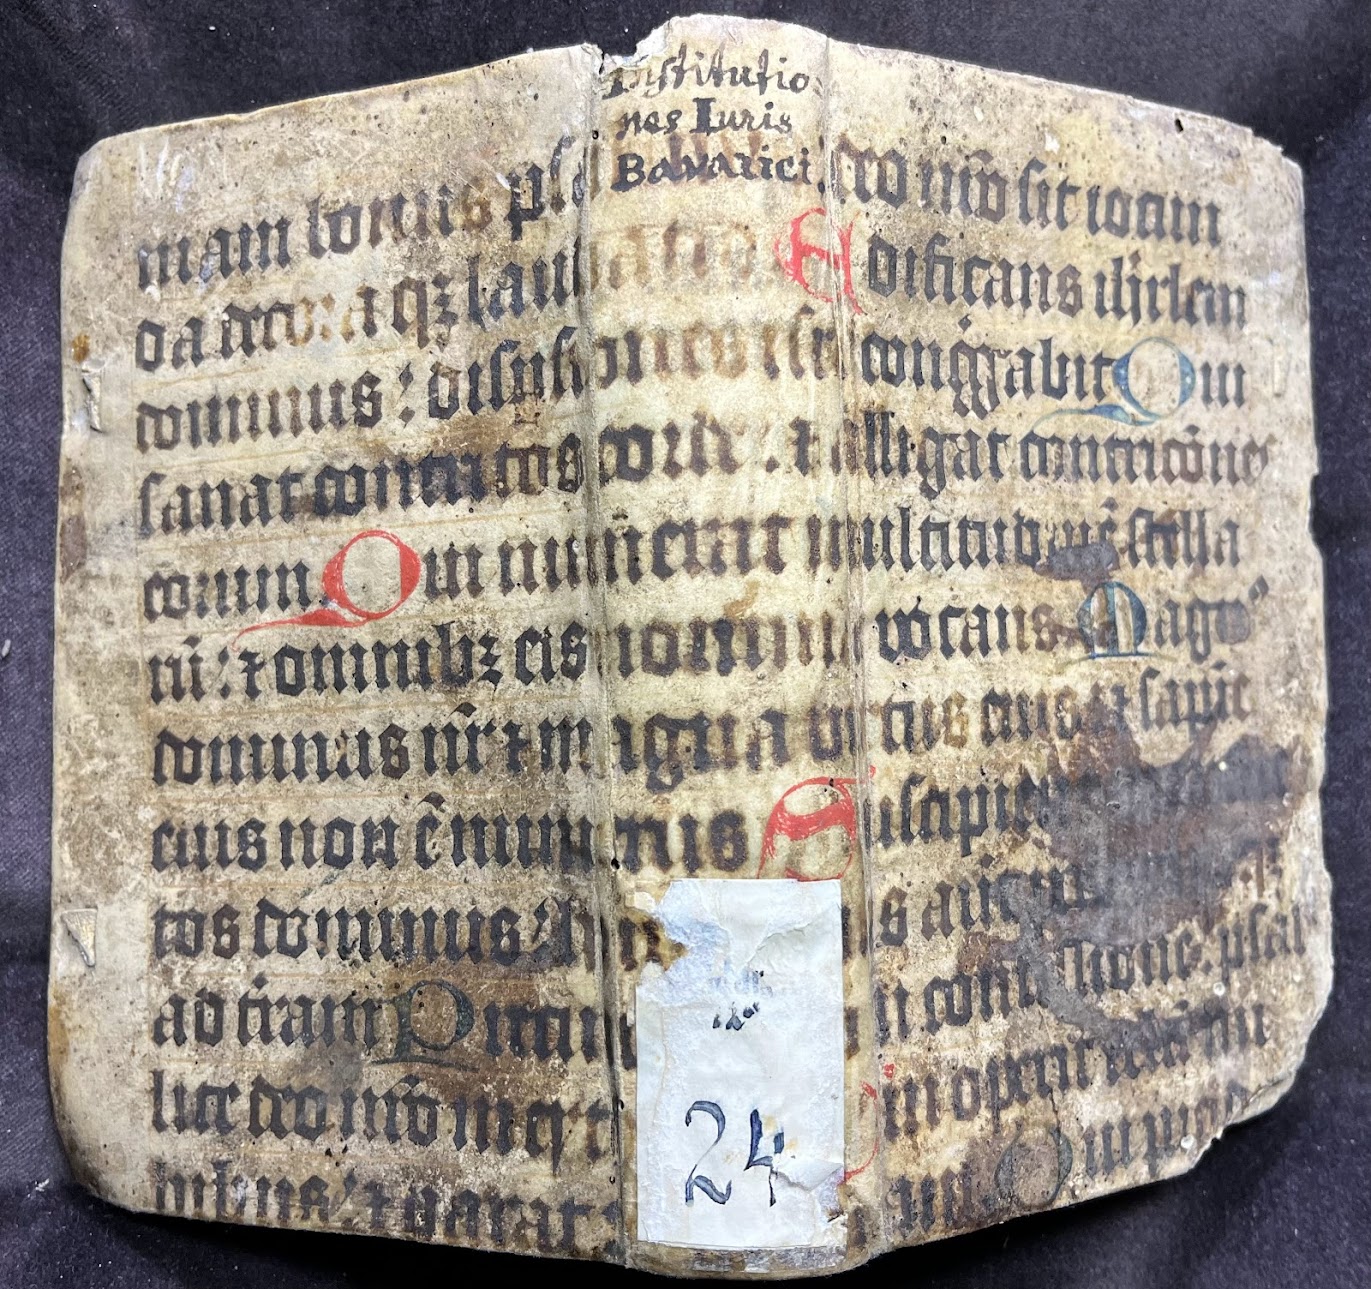 Institutio-
nes Iuris
Bavarici.
niam bonus psal deo nr̄o sit iocun
da decora qꝫ laudatio Edificans ihrlem
dominus : dispersiones isrl congͣgabit Qui
sanat contritos corde : ⁊ alligat contricōnes
eorum Qui numerat multitudinē stella
rū : ⁊ omnibꝫ eis nomina vocans Magnꝰ
dominus nr̄ ⁊ magna virtus eius ⁊ sapiē
eius non ē numerus Suscipiens
tos dominus
ad terram Preci in confessione : psal
lite deo nr̄o in Qui operit celū nu
bibus : ⁊ parat Qui
24